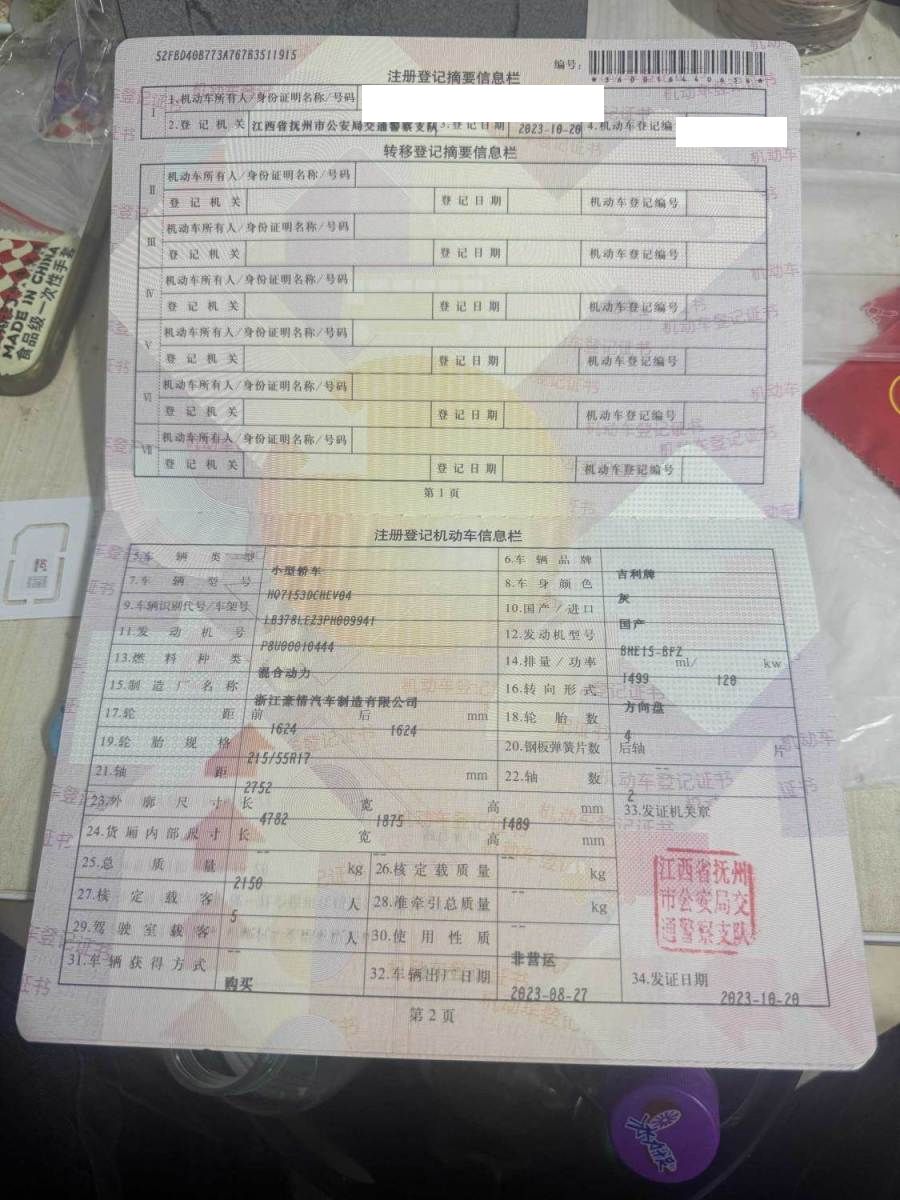 52FBD40B773A767B3511915
编号:
*360016440634*
注册登记摘要信息栏
Ⅰ 1.机动车所有人/身份证明名称/号码
2.登记机关 江西省抚州市公安局交通警察支队 3.登记日期 2023-10-20 4.机动车登记编
转移登记摘要信息栏
Ⅱ 机动车所有人/身份证明名称/号码
登记机关 登记日期 机动车登记编号
Ⅲ 机动车所有人/身份证明名称/号码
登记机关 登记日期 机动车登记编号
Ⅳ 机动车所有人/身份证明名称/号码
登记机关 登记日期 机动车登记编号
Ⅴ 机动车所有人/身份证明名称/号码
登记机关 登记日期 机动车登记编号
Ⅵ 机动车所有人/身份证明名称/号码
登记机关 登记日期 机动车登记编号
Ⅶ 机动车所有人/身份证明名称/号码
登记机关 登记日期 机动车登记编号
第1页
注册登记机动车信息栏
5.车辆类型 小型轿车 6.车辆品牌 吉利牌
7.车辆型号 HQ7153DCHEV04 8.车身颜色 灰
9.车辆识别代号/车架号 LB378LEZ3PH009941 10.国产/进口 国产
11.发动机号 P8U00010444 12.发动机型号 BHE15-BFZ
13.燃料种类 混合动力 14.排量/功率 1499 ml/ 120 kw
15.制造厂名称 浙江豪情汽车制造有限公司 16.转向形式 方向盘
17.轮距 前 1624 后 1624 mm 18.轮胎数 4
19.轮胎规格 215/55R17 20.钢板弹簧片数 后轴 -- 片
21.轴距 2752 mm 22.轴数 2
23.外廓尺寸 长 4782 宽 1875 高 1489 mm 33.发证机关章
24.货厢内部尺寸 长 -- 宽 -- 高 -- mm
25.总质量 2150 kg 26.核定载质量 -- kg
27.核定载客 5 人 28.准牵引总质量 -- kg
29.驾驶室载客 -- 人 30.使用性质 非营运
31.车辆获得方式 购买 32.车辆出厂日期 2023-08-27 34.发证日期 2023-10-20
江西省抚州
市公安局交
通警察支队
第2页
MADE IN CHINA
食品级一次性手套